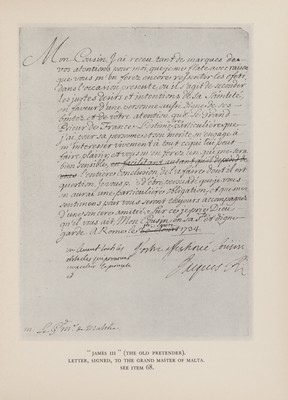 Mon Cousin, J'ai reçu tant de marques de
vos attentions pour moi, que je me flate avec raison
que vous m'en ferez encore ressentir les effets,
dans l'occasion presente, ou il s'agit de seconder
les justes desirs et intentions de Sa Sainteté,
en faveur d'une personne aussi digne de ses
bontez et de votre attention que le Grand
Prieur de France. L'estime particuliere que
j'ai pour sa personne et son merite, m'engage a
m'interesser vivement a tout ce qui lui peut
faire plaisir, et vous m'en ferez un qui me sera
bien sensible, en
l'entiere conclusion de l'affaire dont il est
question
en aurai une particuliere obligation, et que mes
sentimens pour vous seront toujours accompagnez
d'une sincere amitié. Sur ce je prie Dieu
qu'il vous ait Mon Cousin, en Sa Ste et digne
garde. A Rome le 1734.
Votre affectionné Cousin
Jacques R.
"JAMES III" (THE OLD PRETENDER).
LETTER, SIGNED, TO THE GRAND MASTER OF MALTA.
SEE ITEM 68.